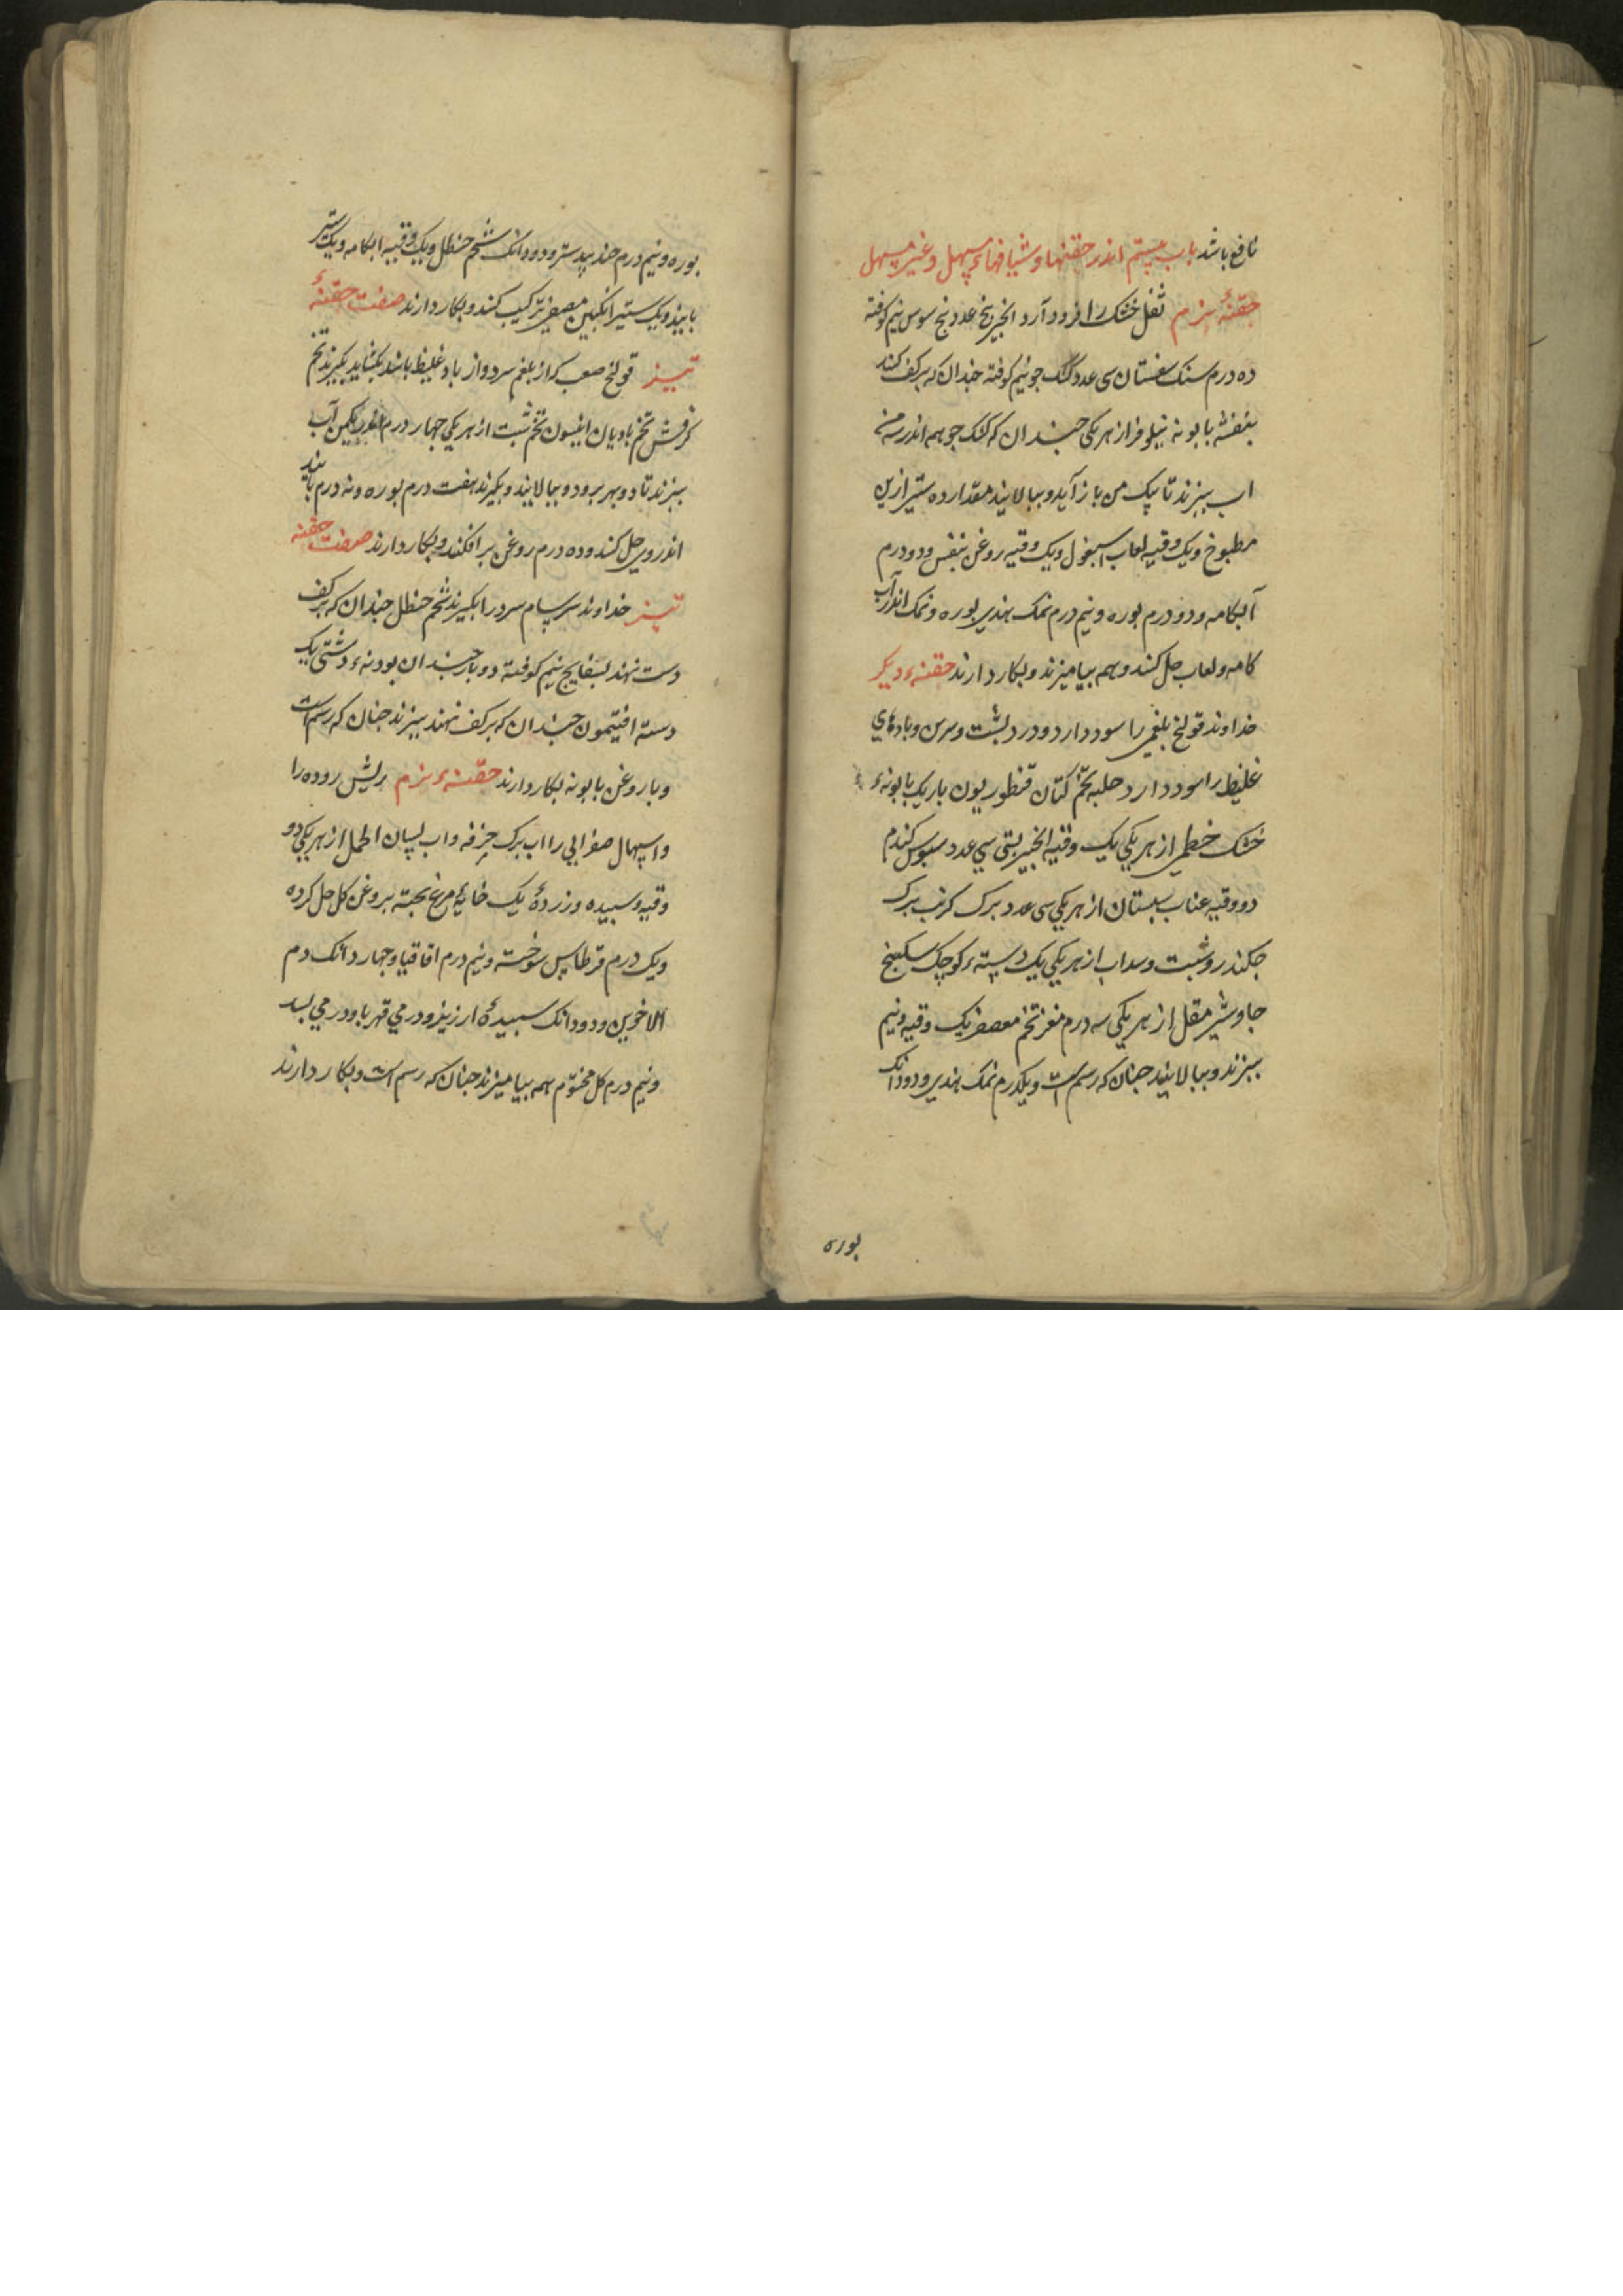 نافع باشد باب بیستم اندر حقنها و شیافهاء مسهل و غیر مسهل
حقنهٔ نرم ثفل خشک را فرود آرد انجیر پنج عدد بیخ سوس نیم کوفته
ده درم سنک سفستان سی عدد کشک جو نیم کوفته چندان که بر کف کنند
بنفشه بابونه نیلوفر از هر یکی چندان که کشک جو همه اندر سه من
اب ببزند تا بیک من باز آید و ببالایند مقدار ده ستیر ازین
مطبوخ و یک وقیه لعاب اسبغول و یک وقیه روغن بنفش و دو درم
آبکامه و دو درم بوره و نیم درم نمک هندی بوره و نمک اندر آب
کامه و لعاب حل کنند و همه بیامیزند و بکار دارند حقنهء دیکر
خداوند قولنج بلغمی را سود دارد و درد بشت و سرین و بادهای
غلیظ را سود دارد حلبه تخم کتان قنطوریون باریک بابونهء
خشک خطمی از هر یکی یک وقیه انجیر بستی سی عدد سبوس کندم
دو وقیه عناب سبستان از هر یکی سی عدد برک کرنب برک
جکندر و شبت و سداب از هر یکی یک دستهء کوچک سکبینج
جاوشیر مقل از هر یکی سه درم مغز تخم معصفر یک وقیه و نیم
ببزند و ببالایند جنان که رسم است و یکدرم نمک هندی و دو دانک
بوره
بوره و نیم درم جند بیدستر و دو دانک شحم حنظل و یک وقیه ابکامه و یک ستیر
بانیذ و یک ستیر انکبین مصفی ترکیب کنند و بکار دارند صفت حقنهٔ
تیز قولنج صعب کز بلغم سرد و از باد غلیظ باشد بکشاید بکیرند تخم
کرفش تخم بادیان انیسون تخم شبت از هر یکی جهار درم اندر یکمن آب
ببزند تا دو بهر برود و ببالایند و بکیرند هفت درم بوره و نه درم بانیذ
اندر وی حل کنند و ده درم روغن بر افکنند و بکار دارند صفت حقنه
تیز خداوند سرسام سرد را بکیرند شحم حنظل چندان که بر کف
دست نهند بسفایج نیم کوفته دو بار چندان بودنهء دشتی یک
دسته افتیمون چندان که بر کف نهند ببزند جنان که رسم است
و با روغن بابونه بکار دارند حقنهء نرم ریش روده را
و اسهال صفرایی را اب برک خرفه و اب لسان الحمل از هر یکی دو
وقیه و سبیده و زردهٔ یک خایهٔ مرغ بخته بروغن کل حل کرده
و یک درم قرطاس سوخته و نیم درم اقاقیا و جهار دانک دم
الاخوین و دو دانک سبیدهٔ ارزیز و درمی قهربا و درمی بسد
و نیم درم کل مختوم همه بیامیزند جنان که رسم است و بکار دارند